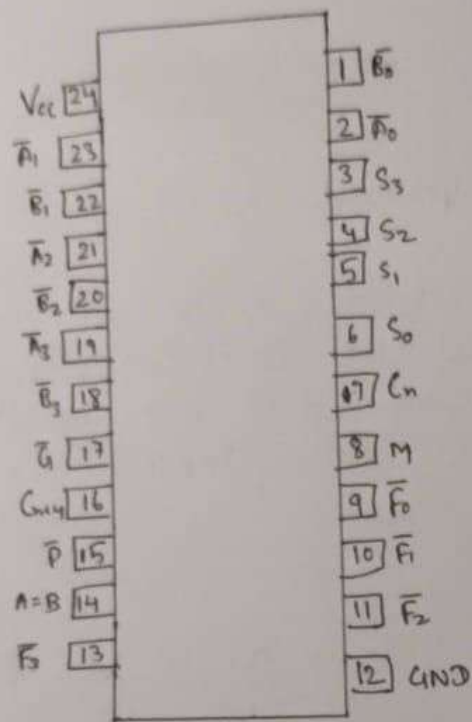 Vcc 24
A̅₁ 23
B̅₁ 22
A̅₂ 21
B̅₂ 20
A̅₃ 19
B̅₃ 18
G̅ 17
Cn+4 16
P̅ 15
A=B 14
F̅₃ 13
1 B̅₀
2 A̅₀
3 S₃
4 S₂
5 S₁
6 S₀
7 Cn
8 M
9 F̅₀
10 F̅₁
11 F̅₂
12 GND